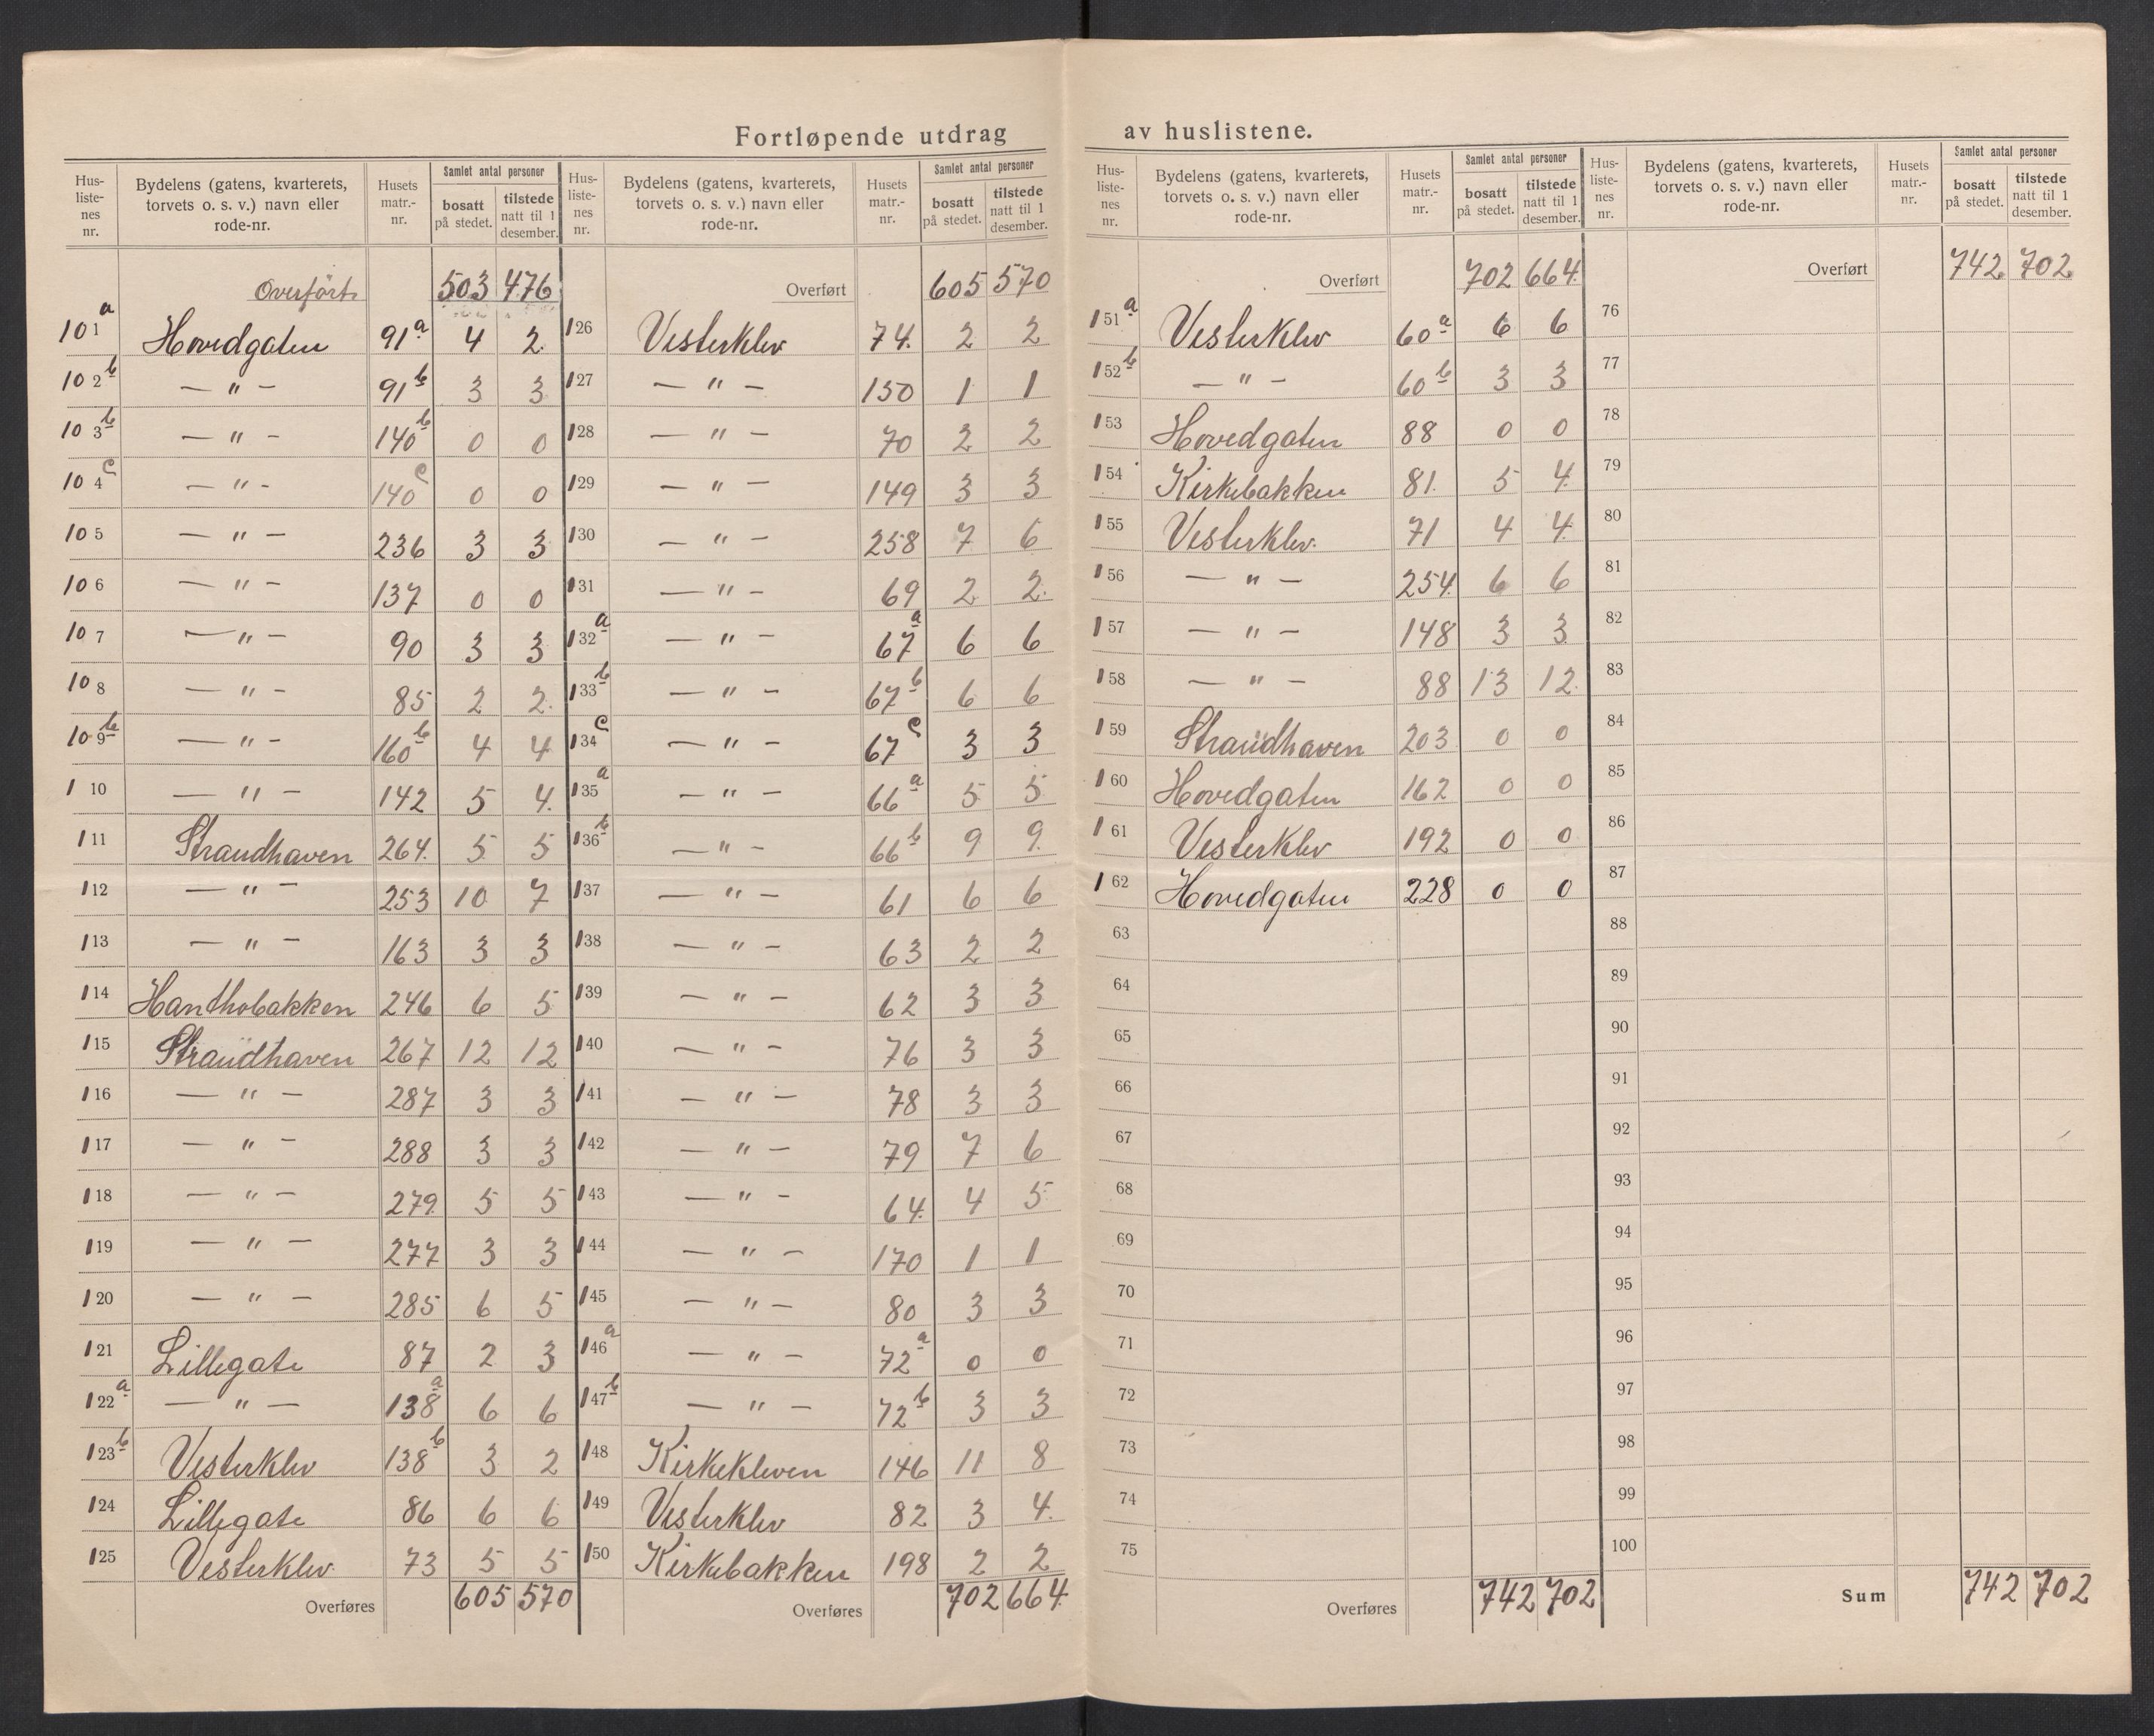 Fortløpende utdrag av huslistene.
Hus-listenes nr. | Bydelens (gatens, kvarterets, torvets o. s. v.) navn eller rode-nr. | Husets matr.-nr. | Samlet antal personer | bosatt på stedet. | tilstede natt til 1 desember.
Overført 503 476
101 a Hovedgaten 91 a 4 2
102 b — " — 91 b 3 3
103 b — " — 140 b 0 0
104 c — " — 140 c 0 0
105 — " — 236 3 3
106 — " — 137 0 0
107 — " — 90 3 3
108 — " — 85 2 2
109 b — " — 160 b 4 4
110 — " — 142 5 4
111 Strandhaven 264 5 5
112 — " — 253 10 7
113 — " — 163 3 3
114 Hanthobakken 246 6 5
115 Strandhaven 267 12 12
116 — " — 287 3 3
117 — " — 288 3 3
118 — " — 279 5 5
119 — " — 277 3 3
120 — " — 285 6 5
121 Lillegate 87 2 3
122 a — " — 138 a 6 6
123 b Vesterklev 138 b 3 2
124 Lillegate 86 6 6
125 Vesterklev 73 5 5
Overføres 605 570
Hus-listenes nr. | Bydelens (gatens, kvarterets, torvets o. s. v.) navn eller rode-nr. | Husets matr.-nr. | Samlet antal personer | bosatt på stedet. | tilstede natt til 1 desember.
Overført 605 570
126 Vesterklev 74 2 2
127 — " — 150 1 1
128 — " — 70 2 2
129 — " — 149 3 3
130 — " — 258 7 6
131 — " — 69 2 2
132 a — " — 67 a 6 6
133 b — " — 67 b 6 6
134 c — " — 67 c 3 3
135 a — " — 66 a 5 5
136 b — " — 66 b 9 9
137 — " — 61 6 6
138 — " — 63 2 2
139 — " — 62 3 3
140 — " — 76 3 3
141 — " — 78 3 3
142 — " — 79 7 6
143 — " — 64 4 5
144 — " — 170 1 1
145 — " — 80 3 3
146 a — " — 72 a 0 0
147 b — " — 72 b 3 3
148 Kirkekleven 146 11 8
149 Vesterklev 82 3 4
150 Kirkebakken 198 2 2
Overføres 702 664
Hus-listenes nr. | Bydelens (gatens, kvarterets, torvets o. s. v.) navn eller rode-nr. | Husets matr.-nr. | Samlet antal personer | bosatt på stedet. | tilstede natt til 1 desember.
Overført 702 664
151 a Vesterklev 60 a 6 6
152 b — " — 60 b 3 3
153 Hovedgaten 88 0 0
154 Kirkebakken 81 5 4
155 Vesterklev 71 4 4
156 — " — 254 6 6
157 — " — 148 3 3
158 — " — 88 13 12
159 Strandhaven 203 0 0
160 Hovedgaten 162 0 0
161 Vesterklev 192 0 0
162 Hovedgaten 228 0 0
63
64
65
66
67
68
69
70
71
72
73
74
75
Overføres 742 702
Hus-listenes nr. | Bydelens (gatens, kvarterets, torvets o. s. v.) navn eller rode-nr. | Husets matr.-nr. | Samlet antal personer | bosatt på stedet. | tilstede natt til 1 desember.
Overført 742 702
76
77
78
79
80
81
82
83
84
85
86
87
88
89
90
91
92
93
94
95
96
97
98
99
100
Sum 742 702